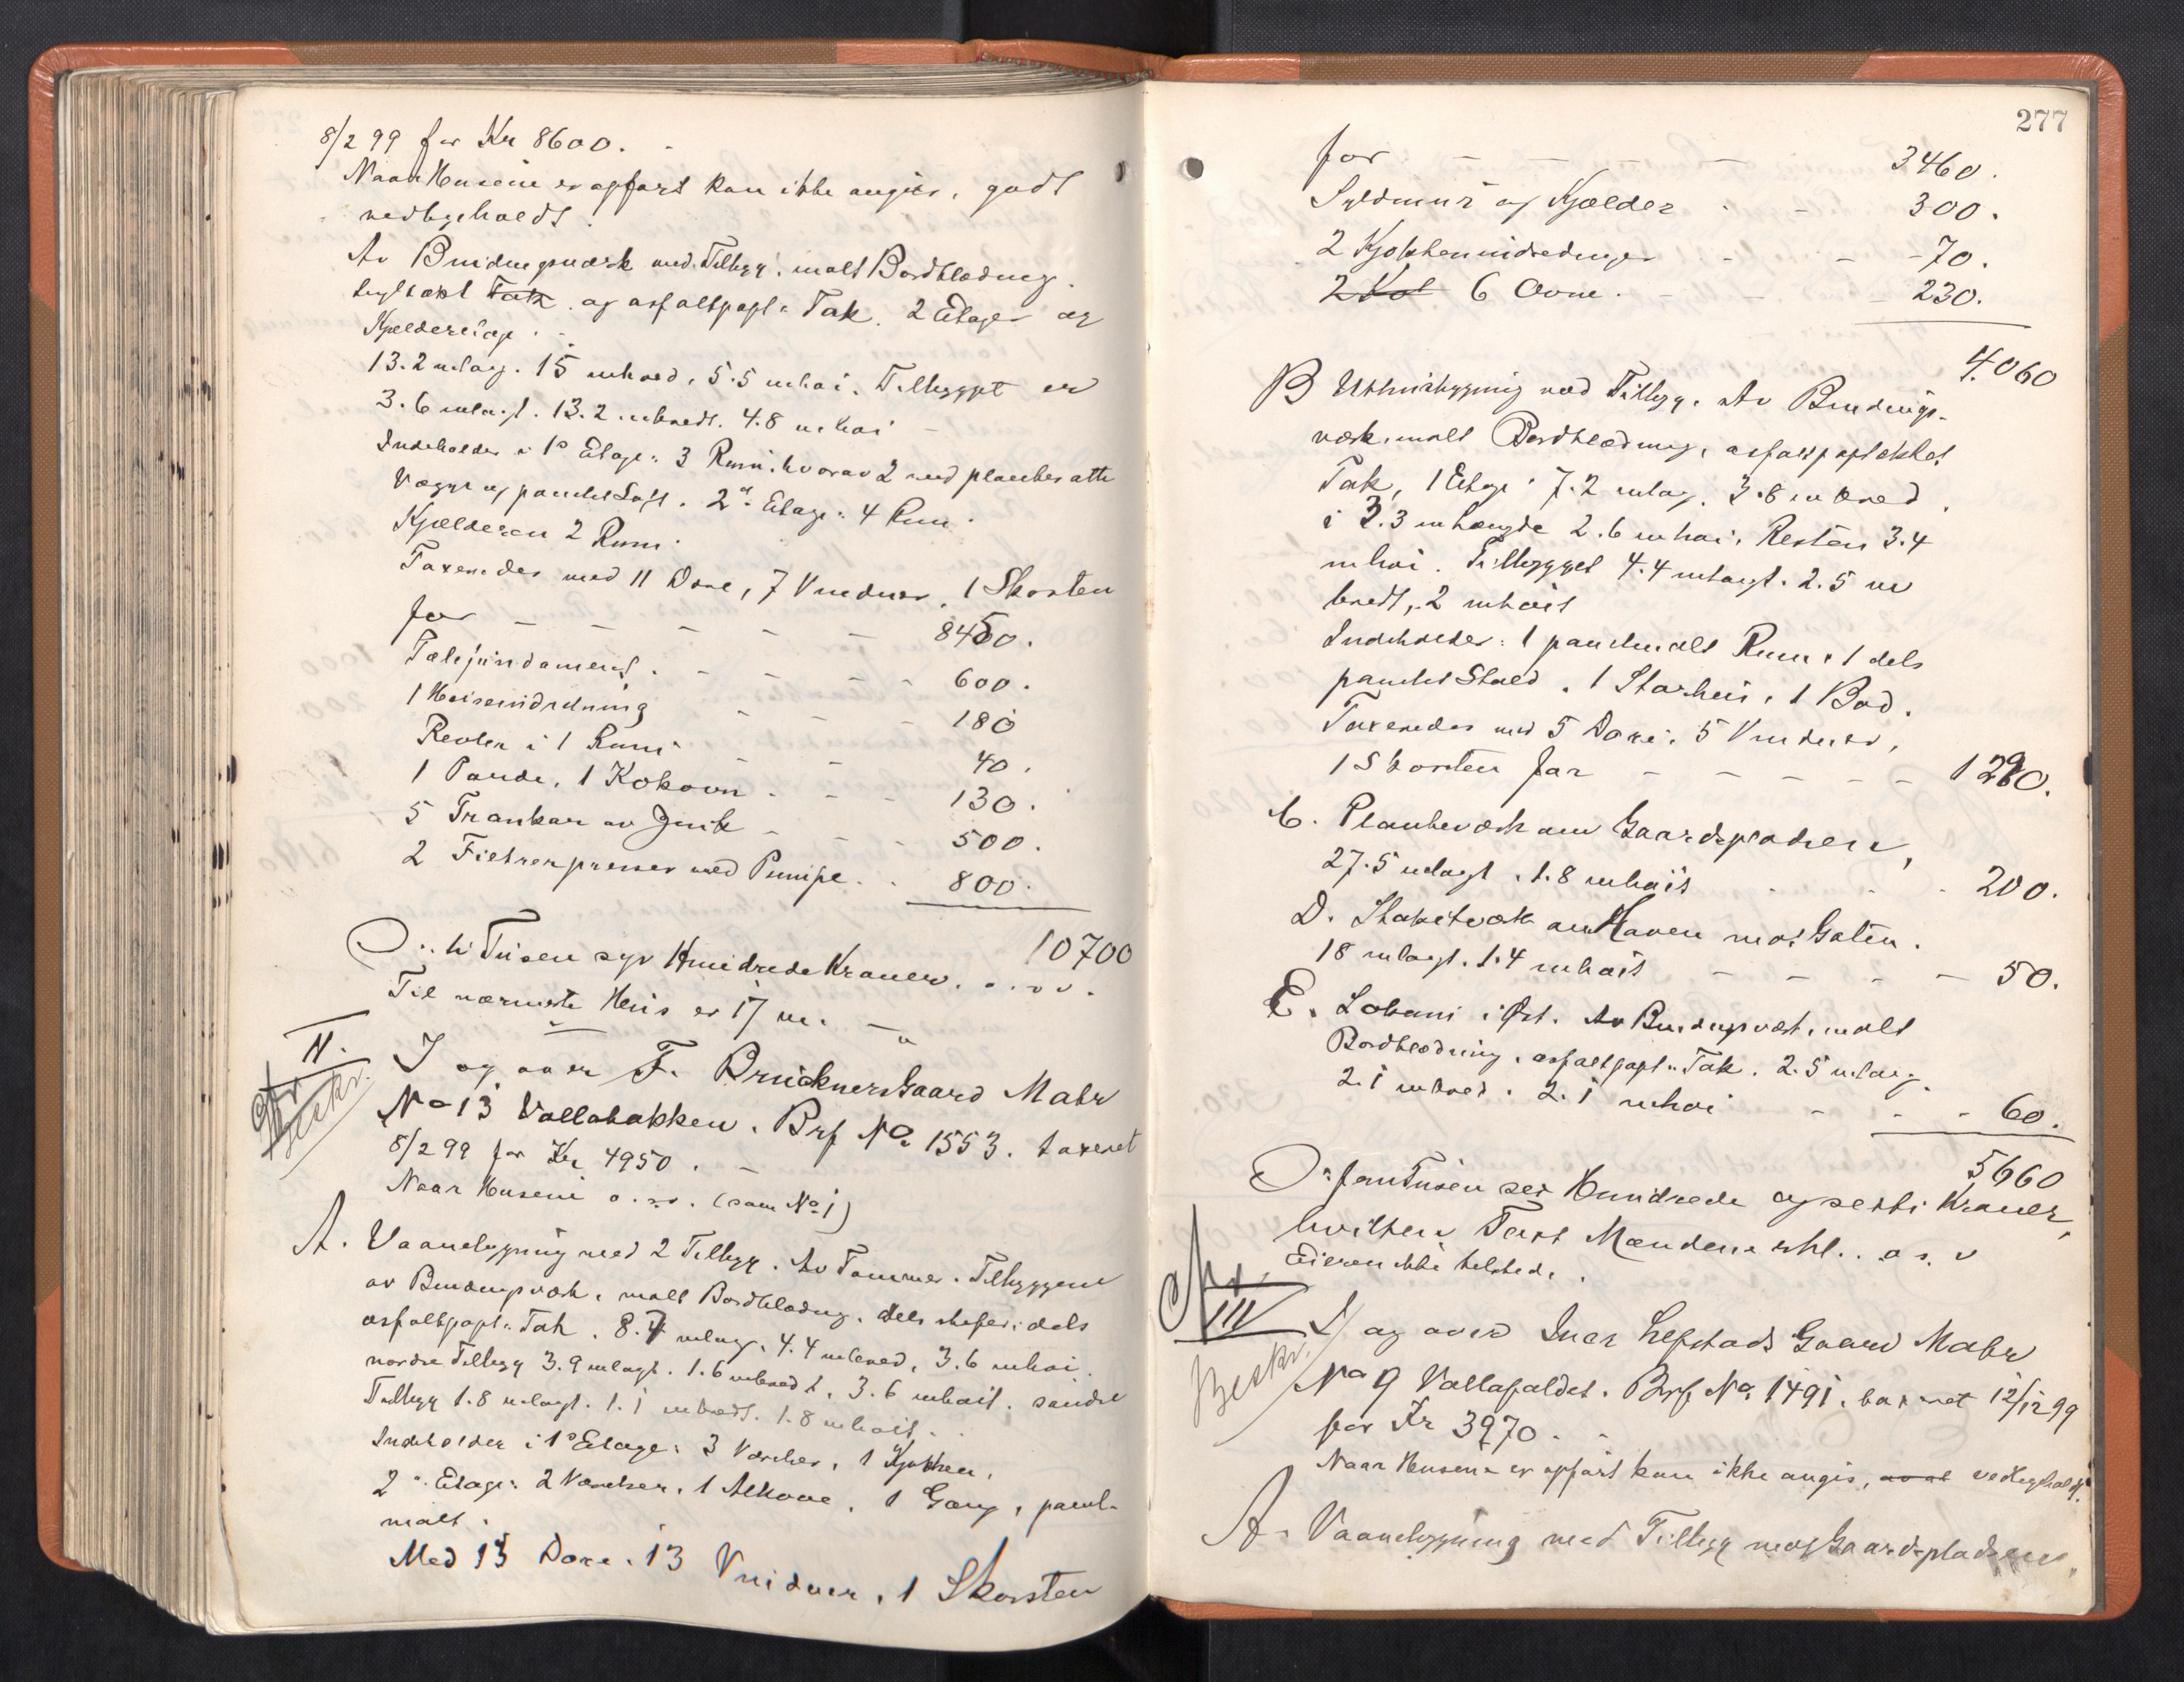 8/2 99 for Kr 8600.
Naar Husene er opført kan ikke angis, godt
vedligeholdt.
Av Bindingsværk med Tilbygg, malt Bordklædning.
teglt Tak og asfaltpapt. Tak. 2 Etager og
Kjælderetage.
13.2 m lang. 15 m bred, 5.5 m høi. Tilbygget er
3.6 m langt. 13.2 m bredt. 4.8 m høi
Indeholder i 1ste Etage: 3 Rum, hvorav 2 med plankesatte
Vægge og panelet Loft. 2den Etage: 4 Rum.
Kjælderen 2 Rum.
Taxeredes med 11 Døre, 7 Vinduer, 1 Skorsten
for 8450.
Pælefundament. 600.
1 Heiseindretning 180
Reoler i 1 Rum 40.
1 Pande, 1 Kokovn 130.
5 Trankar av Zink 500.
2 Filtrerpresser med Pumpe. 800.
10700
O: ti Tusen syv Hundrede Kroner. o.s.v.
Til nærmeste Hus er 17 m.
II.
Beskr.
I og over F. Brückners Gaard Matr
No 13 Vollabakken. Brf No 1553. taxeret
8/2 99 for Kr 4950.
Naar Husene o.s.v. (som No 1)
A. Vaanebygning med 2 Tilbygg. Av Tømmer. Tilbyggene
av Bindingsværk, malt Bordklædng. dels skifer, dels
asfaltpapt. Tak. 8.4 m lang, 4.4 m bred, 3.6 m høi.
nordre Tilbygg 3.9 m langt. 1.6 m bredt, 3.6 m høit. søndre
Tilbygg 1.8 m langt. 1.1 m bredt. 1.8 m høit.
Indeholder i 1ste Etage: 3 Værelser, 1 Kjøkken,
2den Etage: 2 Værelser, 1 Alkove, 1 Gang, panel-
malt.
Med 13 Døre. 13 Vinduer, 1 Skorsten
277
for 3460.
Syldmur og Kjælder 300.
2 Kjøkkenindredninger 70.
2 Kok 6 Ovne. 230.
4060
B Uthusbygning med Tilbygg. Av Bindings-
værk, malt Bordklædning, asfaltpaptækket
Tak, 1 Etage. 7.2 m lang. 3.8 m bred,
i 3.3 m Længde 2.6 m høi, Resten 3.4
m høi. Tilbygget 4.4 m langt. 2.5 m
bredt, 2 m høit
Indeholder: 1 panelmalt Rum, 1 dels
panelet Stald, 1 Storhus, 1 Bod.
Taxeredes med 5 Døre, 5 Vinduer,
1 Skorsten for 1290.
C. Plankeværk om Gaardspladsen,
27.5 m langt, 1.8 m høit 200.
D. Stakitværk om Haven mot Gaten.
18 m langt. 1.4 m høit 50.
E. Lokum i Øst. Av Bindingsværk, malt
Bordklædning, asfaltpapt. Tak. 2.5 m lang.
2.1 m bred. 2.1 m høi 60.
5660
O: fem Tusen sex Hundrede og sexti Kroner,
hvilken Taxt Mændene o.s.v
Eieren ikke tilstede.
III
Beskr.
I og over Iver Lefstads Gaard Matr
No 9 Vollafaldet. Brf. No 1491. taxeret 12/12 99
for Kr 3970.
Naar Husene er opført kan ikke angis, vedligeholdt.
A. Vaanebygning med Tilbygg mot Gaardspladsen.